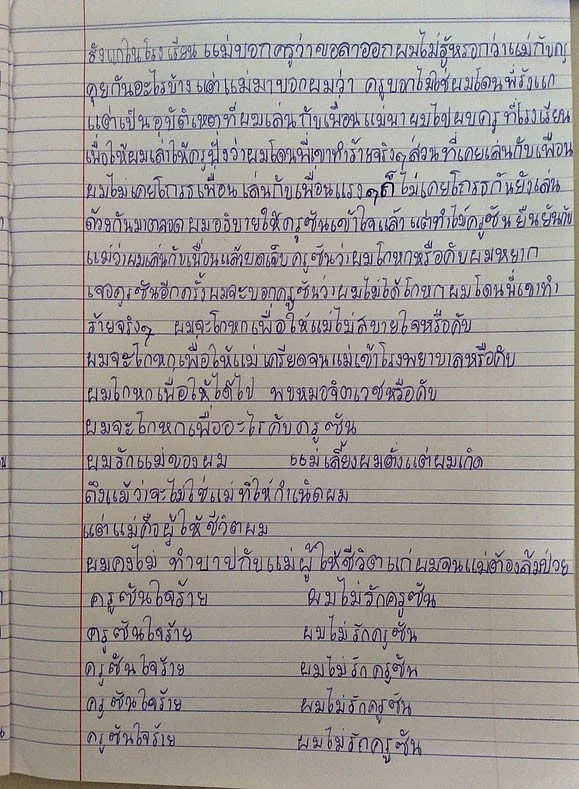 รังแกในโรงเรียน แม่บอกครูว่าขอลาออกผมไม่รู้หรอกว่าแม่กับครู
คุยกันอะไรบ้าง แต่แม่มาบอกผมว่า ครูบอกไม่ใช่ผมโดนพี่รังแก
แต่เป็นอุบัติเหตุที่ผมเล่นกับเพื่อน แม่พาผมไปพบครูที่โรงเรียน
เพื่อให้ผมเล่าให้ครูฟังว่าผมโดนพี่เขาทำร้ายจริงๆ ส่วนที่เคยเล่นกับเพื่อน
ผมไม่เคยโกรธเพื่อน เล่นกับเพื่อนแรงๆก็ไม่เคยโกรธกันยังเล่น
ด้วยกันมาตลอด ผมอธิบายให้ครูซันเข้าใจแล้ว แต่ทำไมครูซันยืนยันกับ
แม่ว่าผมเล่นกับเพื่อนแล้วบาดเจ็บครูซันว่าผมโกหกหรือคับผมหยาก
เจอครูซันอีกครั้งผมจะบอกครูซันว่าผมไม่ได้โกหก ผมโดนพี่เขาทำ
ร้ายจริงๆ ผมจะโกหกเพื่อให้แม่ไม่สบายใจหรือคับ
ผมจะโกหกเพื่อให้แม่ เครียดจนแม่เข้าโรงพยาบาลหรือคับ
ผมโกหกเพื่อให้ได้ไป พบหมอจิตเวชหรือคับ
ผมจะโกหกเพื่ออะไรคับครูซัน
ผมรักแม่ของผม แม่เลี้ยงผมตั้งแต่ผมเกิด
ถึงแม้ว่าจะไม่ใช่แม่ที่ให้กำเนิดผม
แต่แม่คือผู้ให้ชีวิตผม
ผมคงไม่ ทำบาปกับแม่ผู้ให้ชีวิตแก่ผมจนแม่ต้องล้มป่วย
ครูซันใจร้าย ผมไม่รักครูซัน
ครูซันใจร้าย ผมไม่รักครูซัน
ครูซันใจร้าย ผมไม่รักครูซัน
ครูซันใจร้าย ผมไม่รักครูซัน
ครูซันใจร้าย ผมไม่รักครูซัน